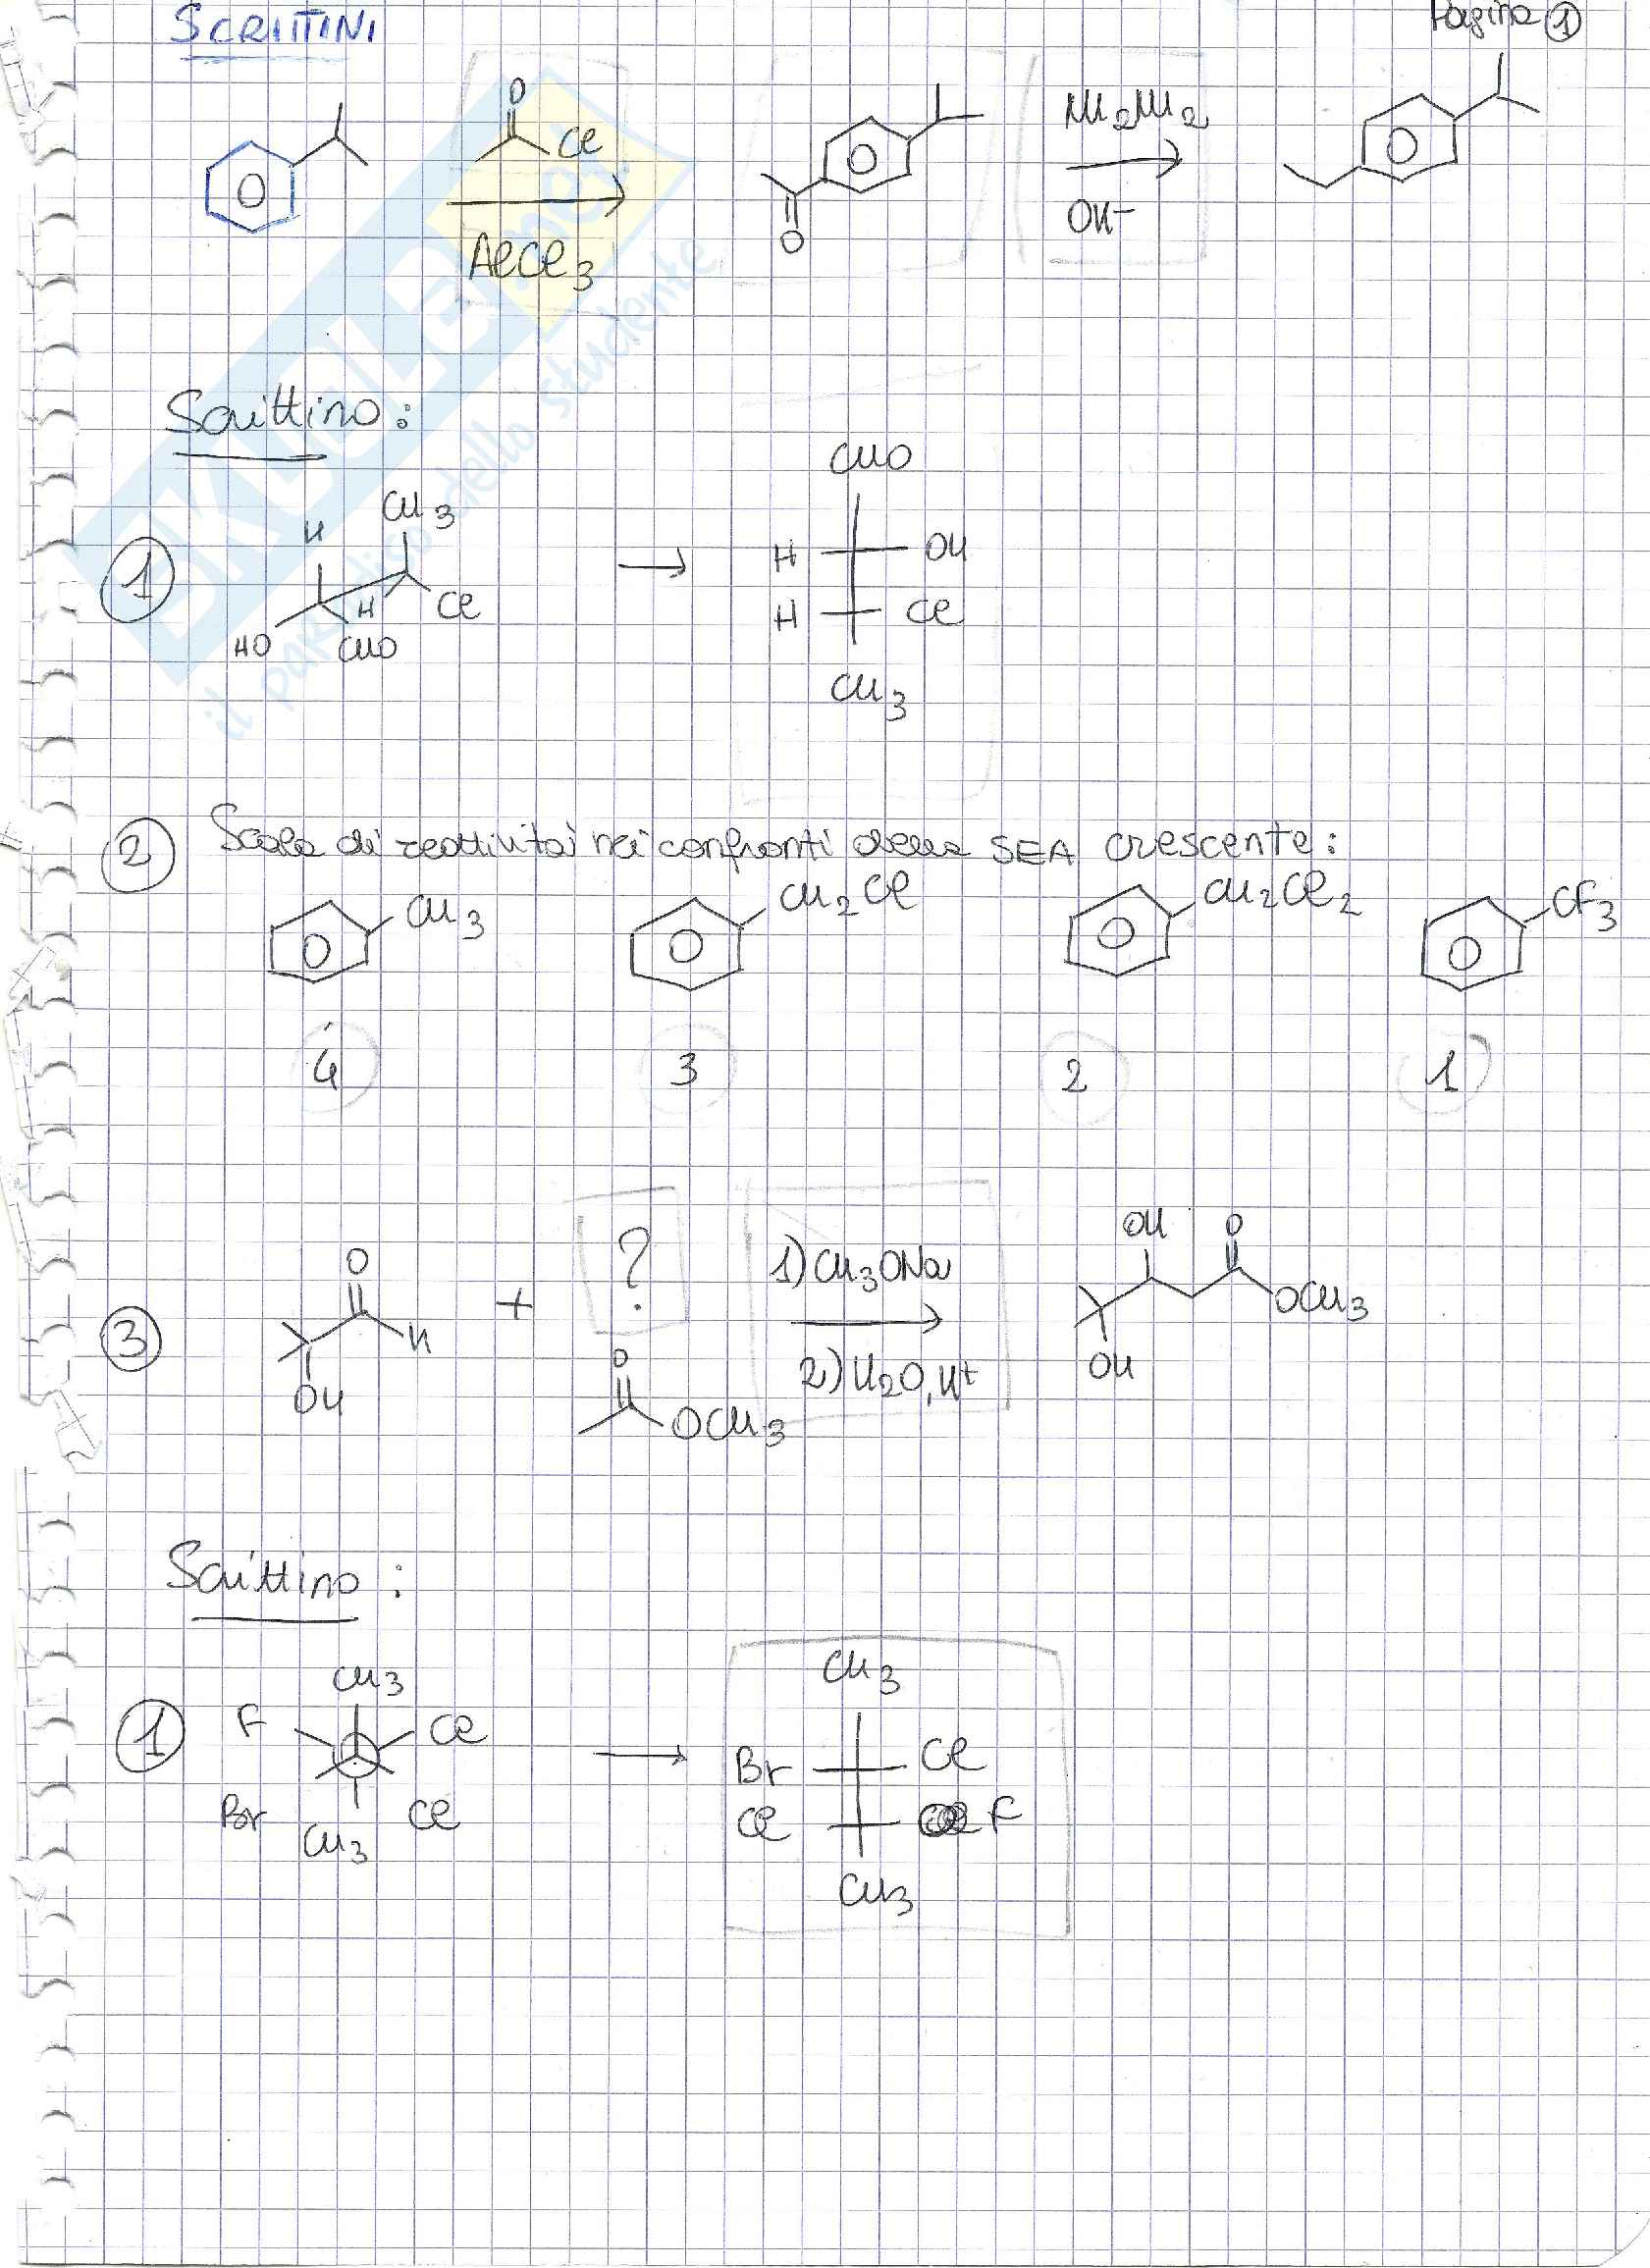 SCRITTINI
Pagina 1
O
Cl
AlCl3
O
NH2NH2
OH-
Scrittino:
1
H
CH3
HO
CHO
H
Cl
CHO
H OH
H Cl
CH3
2 Scala di reattività nei confronti della SEA crescente:
CH3 CH2Cl CH2Cl2 CF3
4 3 2 1
3
O
H
OH
+
?
O
OCH3
1) CH3ONa
2) H2O, H+
OH O
OCH3
OH
Scrittino:
1
CH3
F Cl
Br Cl
CH3
CH3
Br Cl
Cl F
CH3
SKUOLA.net
il paradiso dello studente